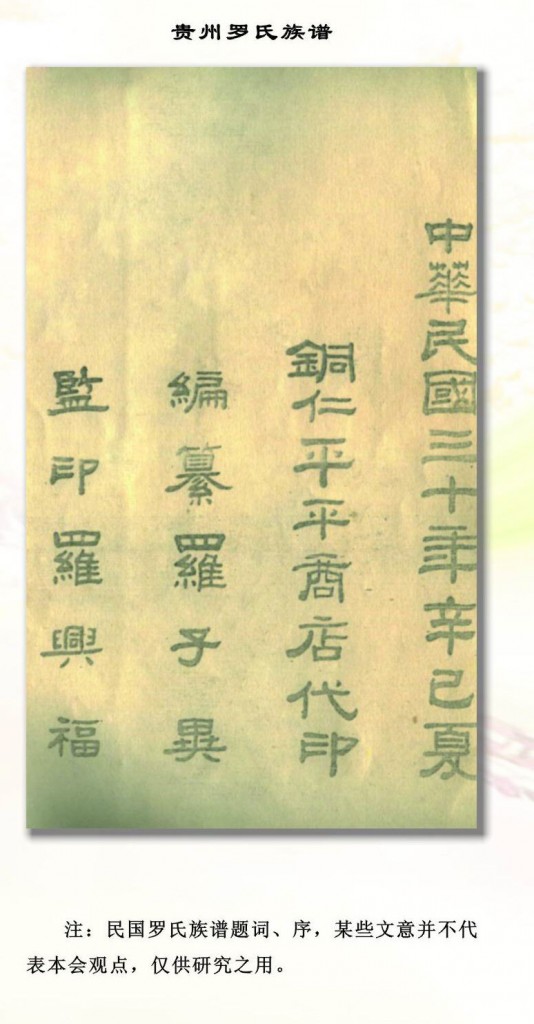 贵州罗氏族谱
中華民國三十年辛巳夏
銅仁平平商店代印
編纂羅子異
監印羅興福
注：民国罗氏族谱题词、序，某些文意并不代
表本会观点，仅供研究之用。